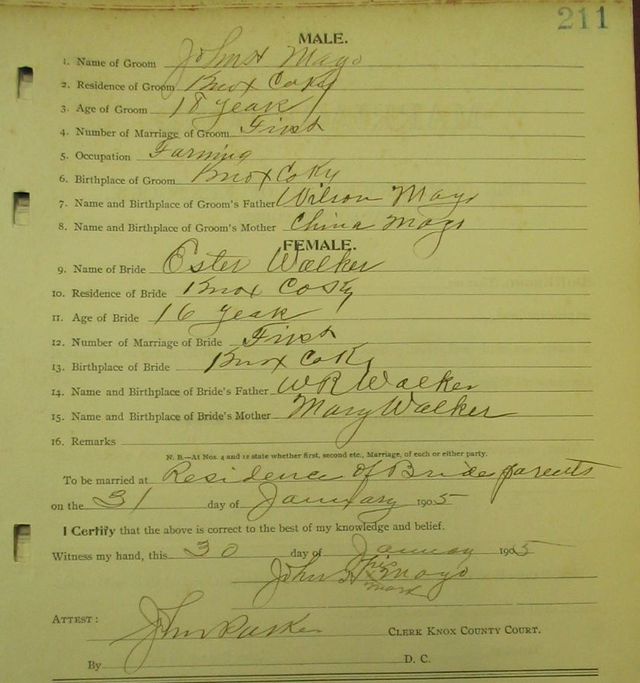 211
MALE.
1. Name of Groom John H Mays
2. Residence of Groom Knox Co Ky
3. Age of Groom 18 years
4. Number of Marriage of Groom First
5. Occupation Farming
6. Birthplace of Groom Knox Co Ky
7. Name and Birthplace of Groom's Father Wilson Mays
8. Name and Birthplace of Groom's Mother China Mays
FEMALE.
9. Name of Bride Ester Walker
10. Residence of Bride Knox Co Ky
11. Age of Bride 16 years
12. Number of Marriage of Bride First
13. Birthplace of Bride Knox Co Ky
14. Name and Birthplace of Bride's Father W R Walker
15. Name and Birthplace of Bride's Mother Mary Walker
16. Remarks
N. B.—At Nos. 4 and 12 state whether first, second etc., Marriage, of each or either party.
To be married at Residence of Bride parents
on the 31 day of January 1905
I Certify that the above is correct to the best of my knowledge and belief.
Witness my hand, this 30 day of January 1905
John H his x mark Mays
ATTEST:
John Parker CLERK KNOX COUNTY COURT.
By D. C.